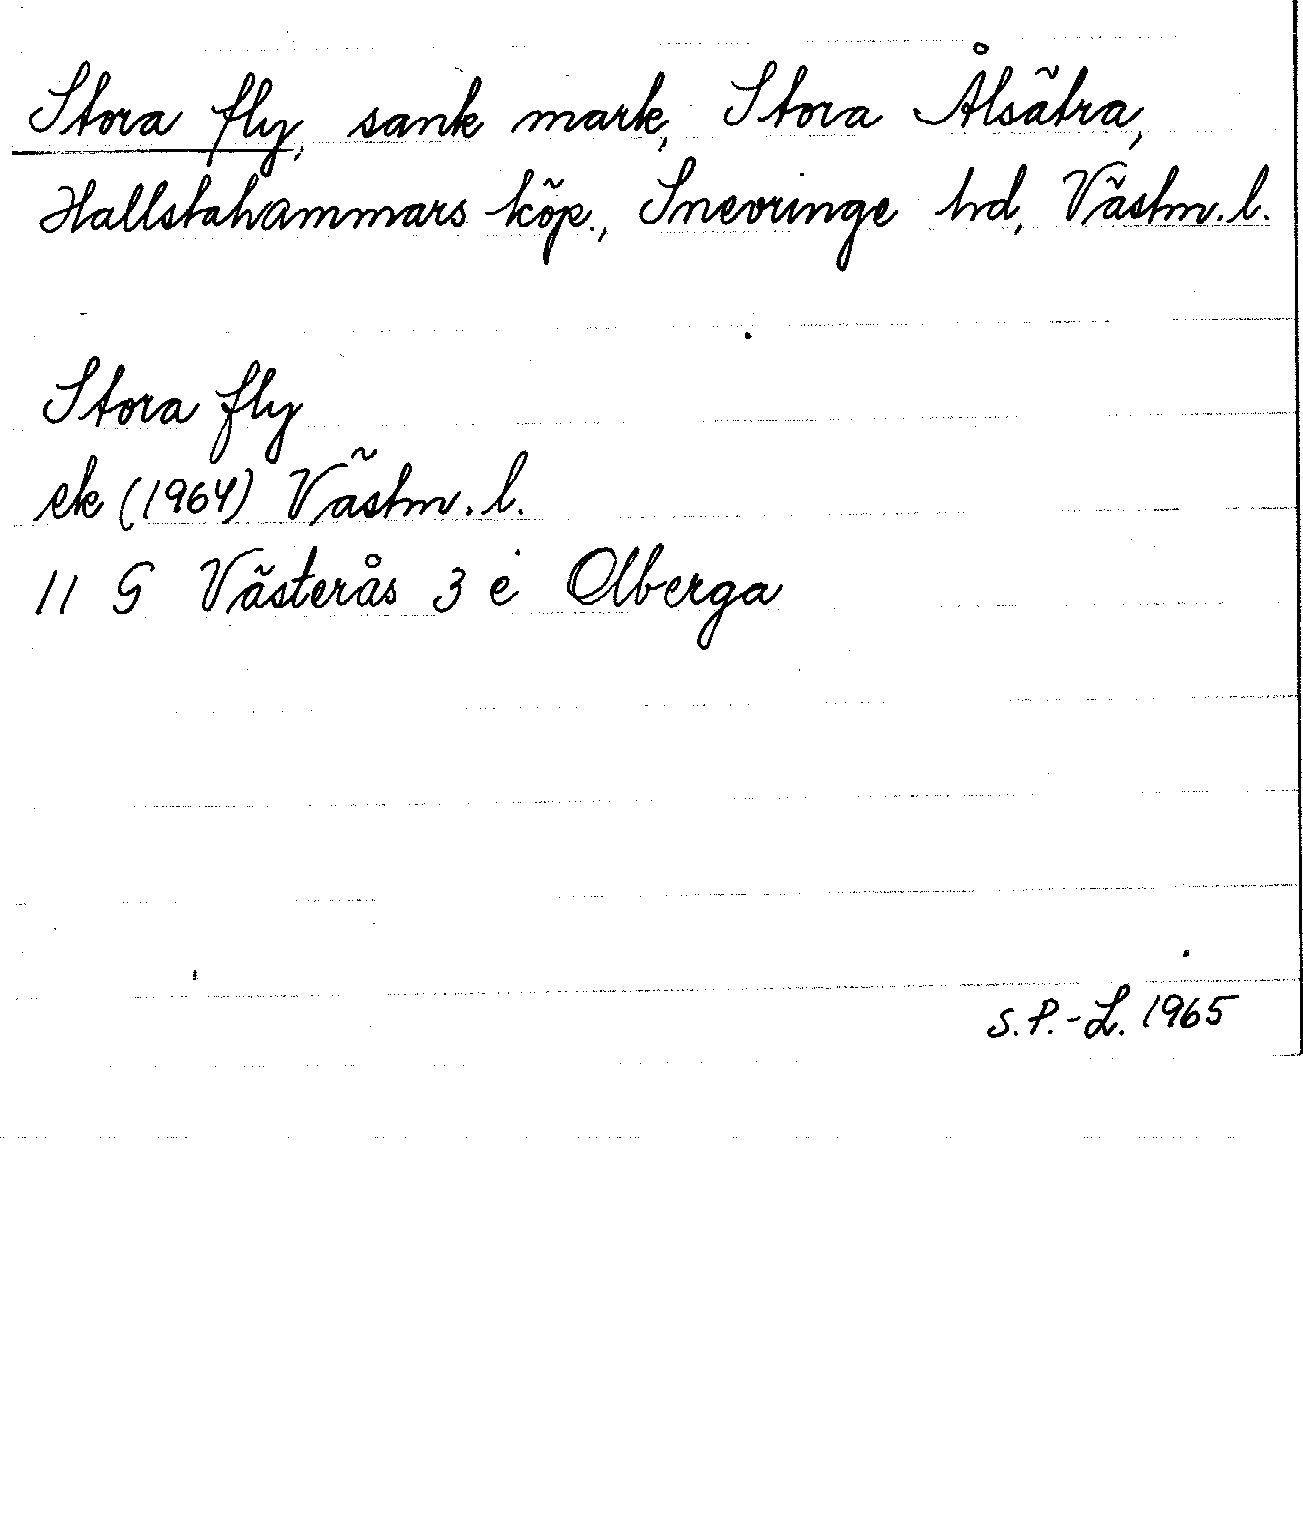 Stora fly, sank mark, Stora Ålsätra,
Hallstahammars köp., Snevringe hd, Västm. l.
Stora fly
ek (1964) Västm. l.
11 G Västerås 3 e Olberga
S.P.-L. 1965